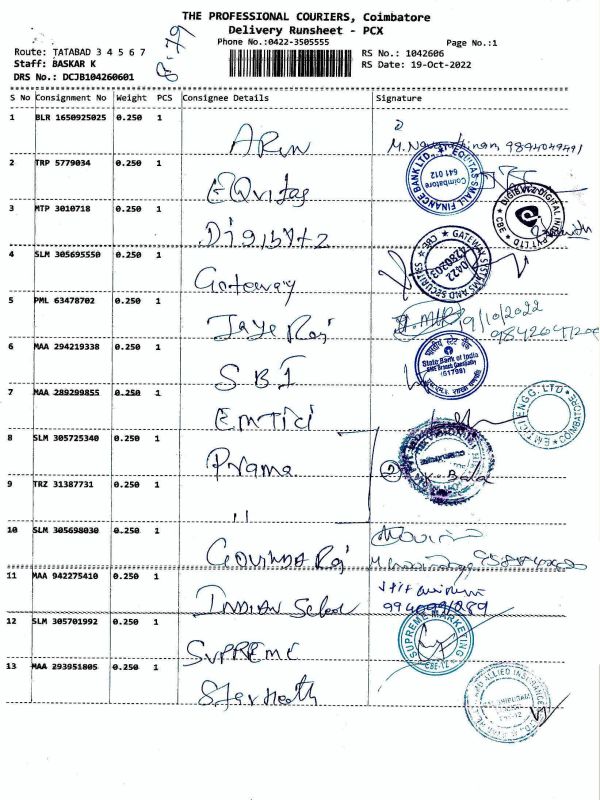 THE PROFESSIONAL COURIERS, Coimbatore
Delivery Runsheet - PCX
Phone No.:0422-3505555
Page No.:1
8-79
Route: TATABAD 3 4 5 6 7
RS No.: 1042606
Staff: BASKAR K
RS Date: 19-Oct-2022
DRS No.: DCJB104260601
S No Consignment No Weight PCS Consignee Details Signature
1 BLR 1650925025 0.250 1 Arun
2 TRP 5779034 0.250 1 EQvitas
EQUITAS SMALL FINANCE BANK LTD.
Coimbatore
641 012
3 MTP 3010718 0.250 1 Digibytz
CBE
4 SLM 305695550 0.250 1 Gateway
GATEWAY SYSTEMS AND SECURITIES ★ CBE ★
0422
5 PML 63478702 0.250 1 Jaye Raj
19/10/2022
6 MAA 294219338 0.250 1 SBI
भारतीय स्टेट बैंक
State Bank of India
7 MAA 289299855 0.250 1 Emtici
EMTICI ENGG. LTD ★ COIMBATORE ★
8 SLM 305725340 0.250 1 Prama
9 TRZ 31387731 0.250 1 "
10 SLM 305698030 0.250 1 GOVINDA Raj
11 MAA 942275410 0.250 1 INDIAN School
12 SLM 305701992 0.250 1 SUPREME
SUPREME MARKETING
CBE-12
13 MAA 293951805 0.250 1 Star heath